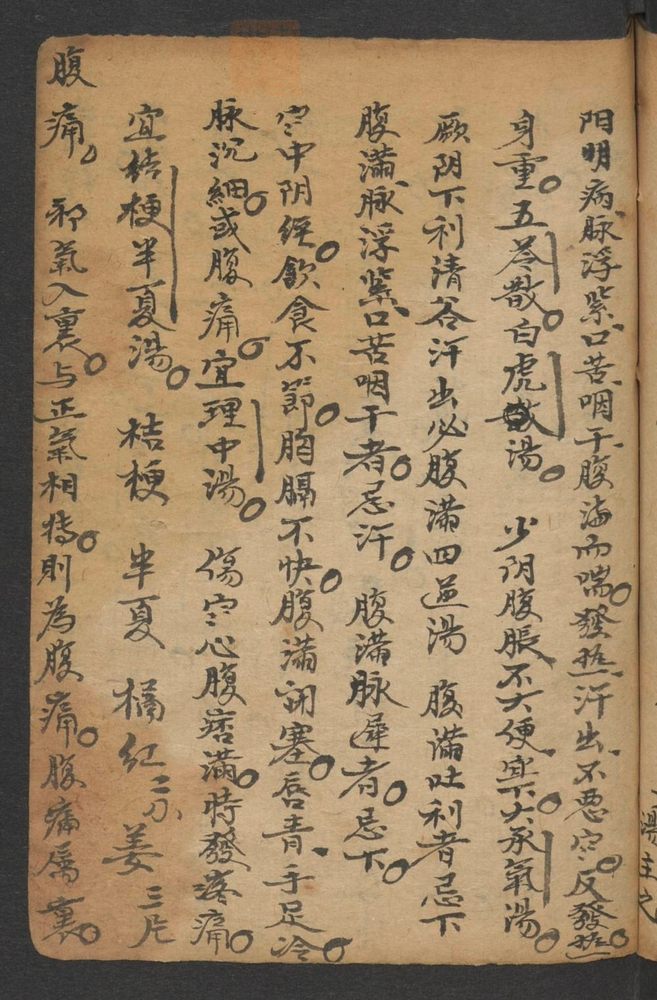 阳明病脉浮紧口苦咽干腹满而喘。發热汗出不悪寒。反發热。
身重。五苓散。白虎湯。 少阴腹脹不大便実。下大承氣湯。
厥阴下利清谷汗出必腹滿四逆湯 腹滿吐利者忌下
腹滿脉浮紧口苦咽干者。忌汗。 腹滿脉遲者。忌下。
寒中阴经。飲食不節。胸膈不快。腹滿闭塞。唇青手足冷。
脉沉細。或腹痛。宜理中湯。 傷寒心腹痞滿。時發疼痛。
宜桔梗半夏湯。 桔梗 半夏 橘红二分 姜三片
腹痛。 邪氣入裏。与正氣相搏。則為腹痛。腹痛属裏。
湯主之